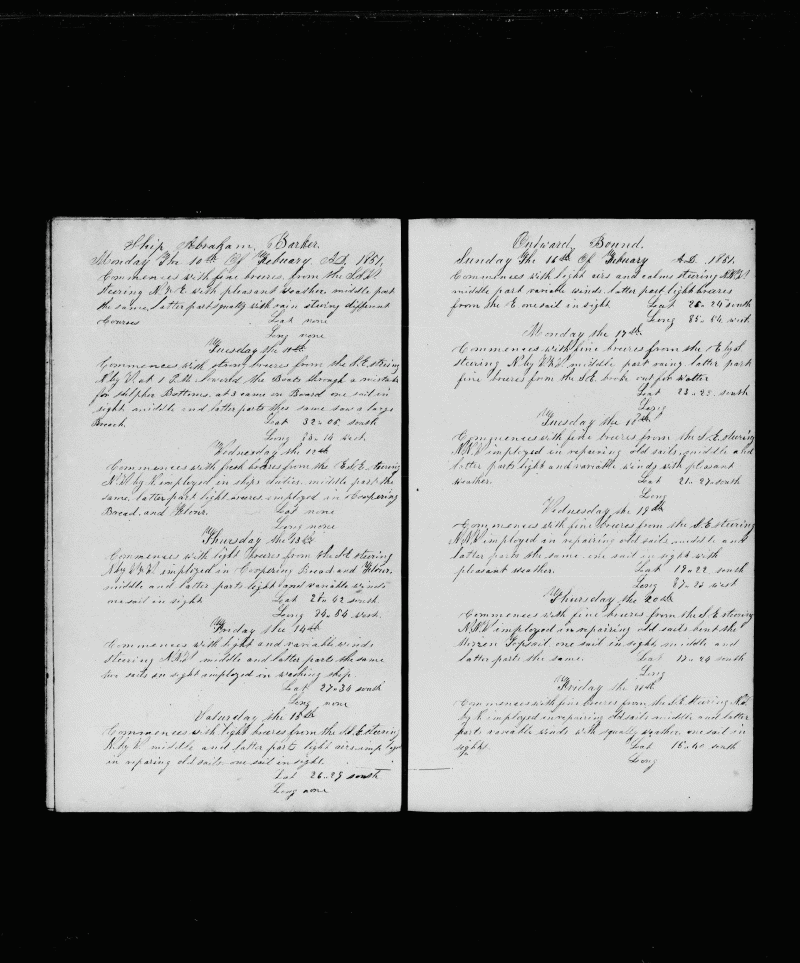 Ship Abraham Barker.
Monday The 10th Of Febuary. A.D. 1851,
Commences with fine breezes from the
steering N.N.E. with pleasant weather, middle part
the same, latter part squally with rain steering different
Courses Lat none
Long none
Tuesday the 11th
Commences with strong breezes from the S.E. steering
N. by W. at 1 P.M. lowered the Boats through a mistake
for Sulpher Bottoms. at 3 came on Board one sail in
sight. middle and latter parts the same saw a large
Breach. Lat 32..05 south
Long west
Wednesday the 12th
Commences with fresh breezes from the E.S.E. steering
employed in ships duties. middle part the
same. latter part light breezes employed in Coopering
Bread and Flour. Lat none
Long none
Thursday the 13th
Commences with light breezes from the S.E. steering
N. by W. employed in Coopering Bread and Flour.
middle and latter parts light and variable winds
one sail in sight Lat 28..42 south
Long 84..54 west.
Friday the 14th
Commences with light and variable winds
steering middle and latter parts the same
two sails in sight employed in washing ship
Lat 27..34 south
Long none
Saturday the 15th
Commences with light breezes from the S.E. steering
N. by W. middle and latter parts light airs employed
in reparing old sails one sail in sight.
Lat 26..29 south
Long none
Outward Bound.
Sunday The 16th Of Febuary A.D. 1851.
Commences with light airs and calms steering
middle part variable winds latter part light breezes
from the E one sail in sight. Lat 25..24 south
Long 85..54 west
Monday the 17th
Commences with fine breezes from the
steering middle part latter part
fine breezes from the S.E. broke out for watter
Lat 23..22 south
Long
Tuesday the 18th
Commences with fine breezes from the S.E. steering
employed in repairing old sails. middle and
latter parts light and variable winds with pleasant
weather. Lat 21..27 south
Long
Wednesday the 19th
Commences with fine breezes from the S.E. steering
employed in repairing old sails. middle and
latter parts the same. one sail in sight with
pleasant weather. Lat 19..22 south
Long west
Thursday the 20th
Commences with fine breezes from the S.E. steering
employed in repairing old sails. bent the
Mizzen Topsail one sail in sight, middle and
latter parts the same. Lat 17..24 south
Long
Friday the
Commences with fine breezes from the S.E. steering
employed in repairing old sails middle and latter
parts variable winds with squally weather. one sail in
sight. Lat 15..40 south
Long